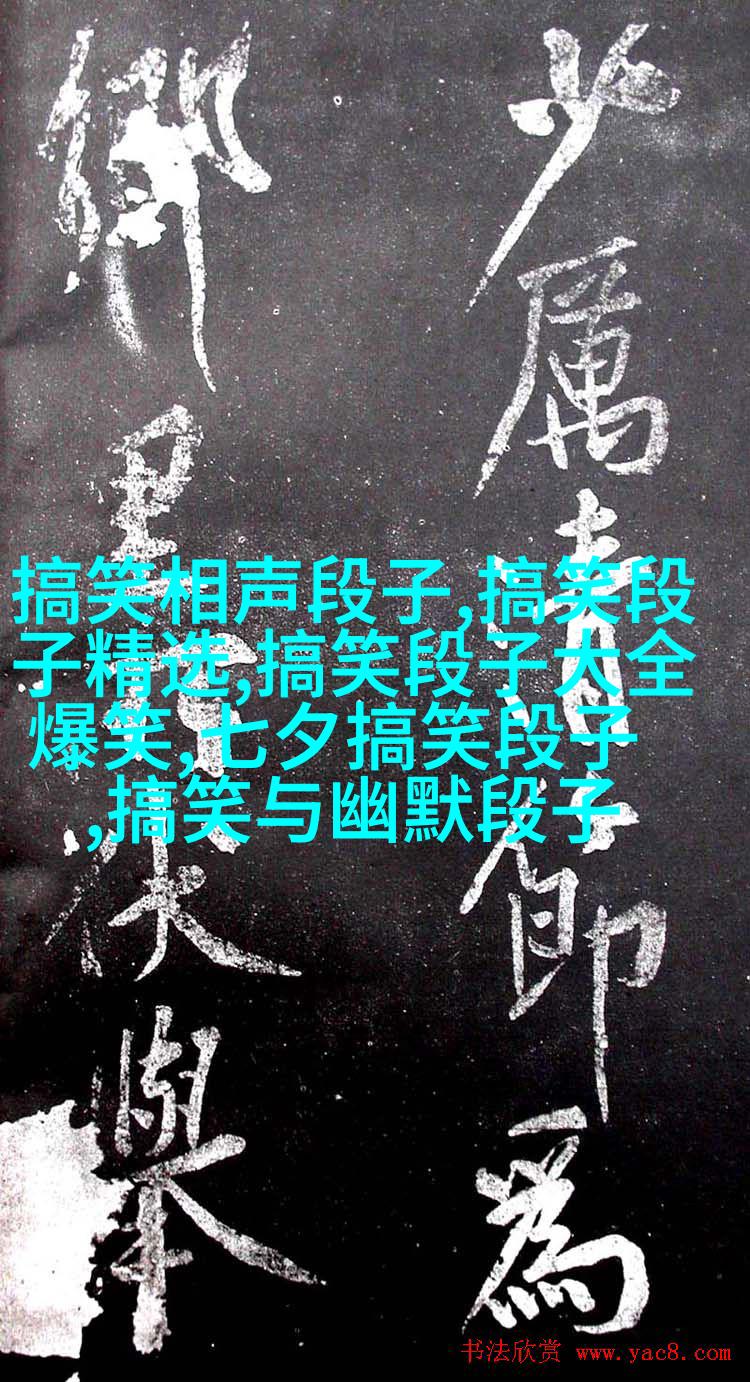 少厲清節為
鄉里伏舉
搞笑相声段子,搞笑段
子精选,搞笑段子大全
爆笑,七夕搞笑段子
,搞笑与幽默段子
书法欣赏 www.yac8.com